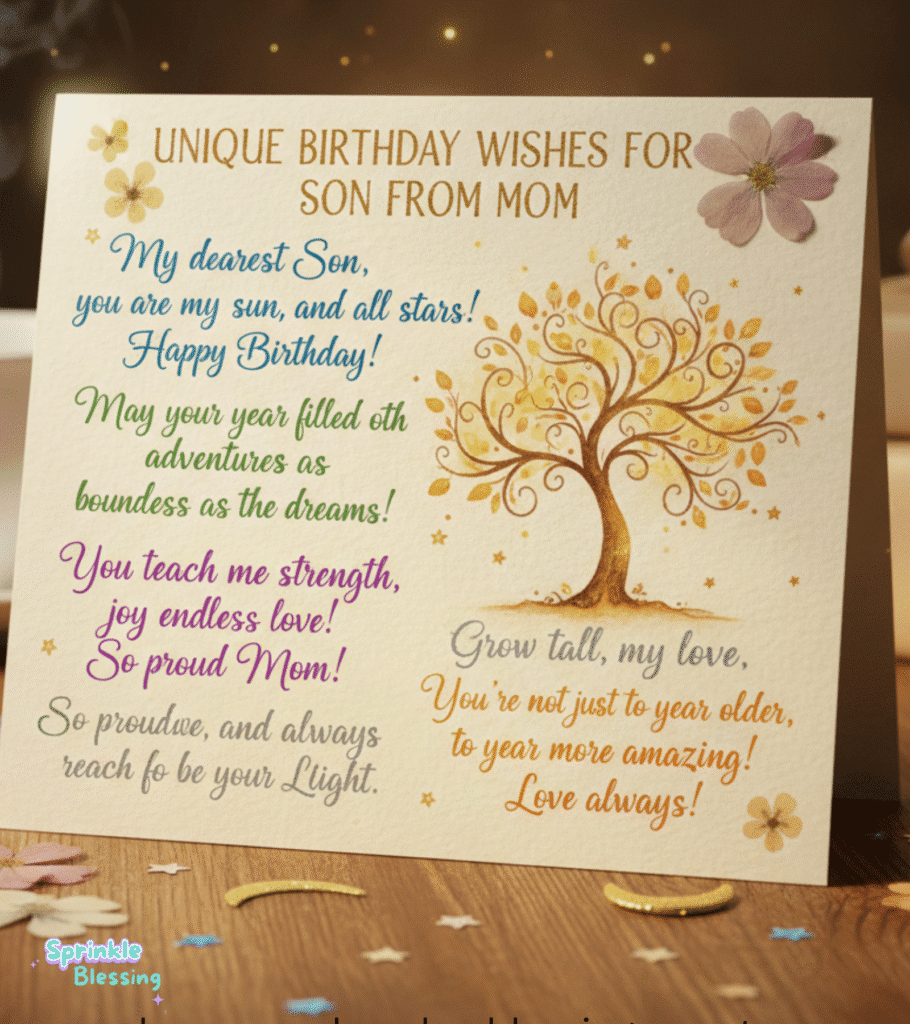 UNIQUE BIRTHDAY WISHES FOR
SON FROM MOM
My dearest Son,
you are my sun, and all stars!
Happy Birthday!
May your year filled oth
adventures as
boundess as the dreams!
You teach me strength,
joy endless love!
So proud Mom!
So proudwe, and always
reach fo be your Ltight.
Grow tall, my love,
You're not just to year older,
to year more amazing!
Love always!
Sprinkle
Blessing